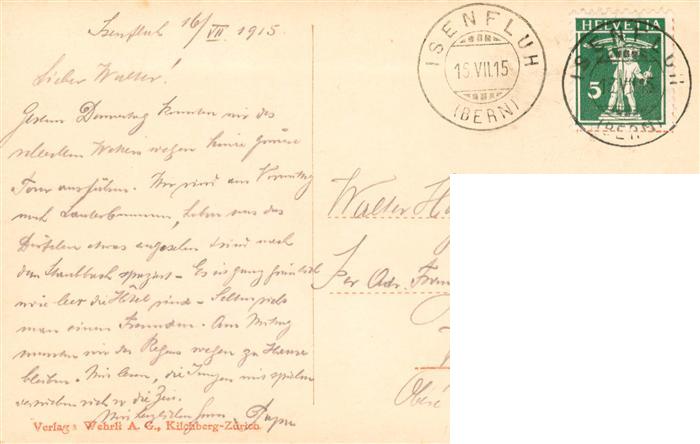 Isenfluh 16/VII 1915.
Lieber Walter!
Gestern Donnerstag konnten wir des
schlechten Wetters wegen keine grössere
Tour ausführen. Wir sind am Vormittag
nach Lauterbrunnen, haben uns das
Dörfchen etwas angesehen & sind nach
dem Staubbach spaziert – Es ist ganz
wie leer die Hôtel sind – Selten sieht
man einen Fremden. Am Mittag
mussten wir des Regens wegen zu Hause
bleiben. Wir lesen, die Jungen
die Zeit.
Mit herzlichen
Verlag: Wehrli A. G., Kilchberg-Zürich
ISENFLUH
15.VII.15
(BERN)
HELVETIA
5
ISENFLUH
(BERN)
Walter
Per Adr.